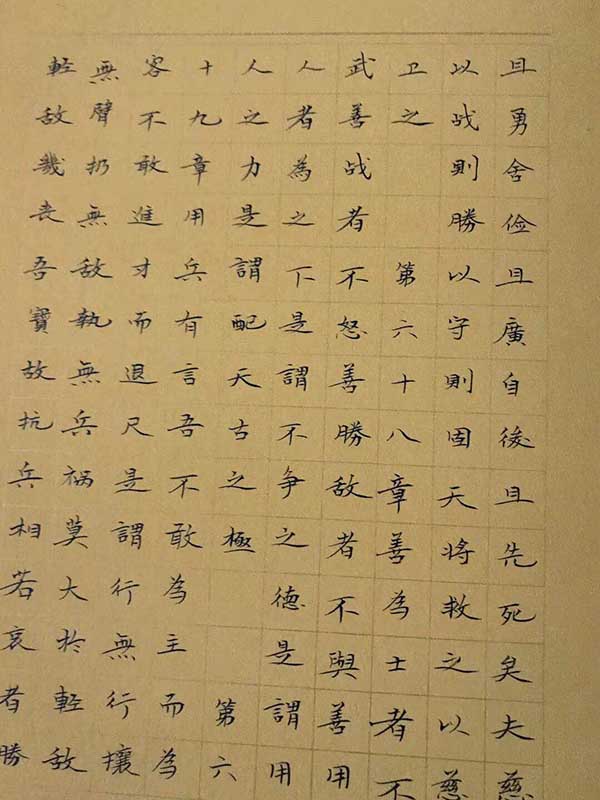 且勇舍俭且廣自後且先死矣夫慈
以战則勝以守則固天將救之以慈
卫之 第六十八章善為士者不
武善战者不怒善勝敵者不與善用
人者為之下是謂不争之德是謂用
人之力是謂配天古之極 第六
十九章用兵有言吾不敢為主而為
客不敢進才而退尺是謂行無行攘
無臂扔無敵執無兵祸莫大於輕敵
輕敵幾丧吾寶故抗兵相若哀者勝